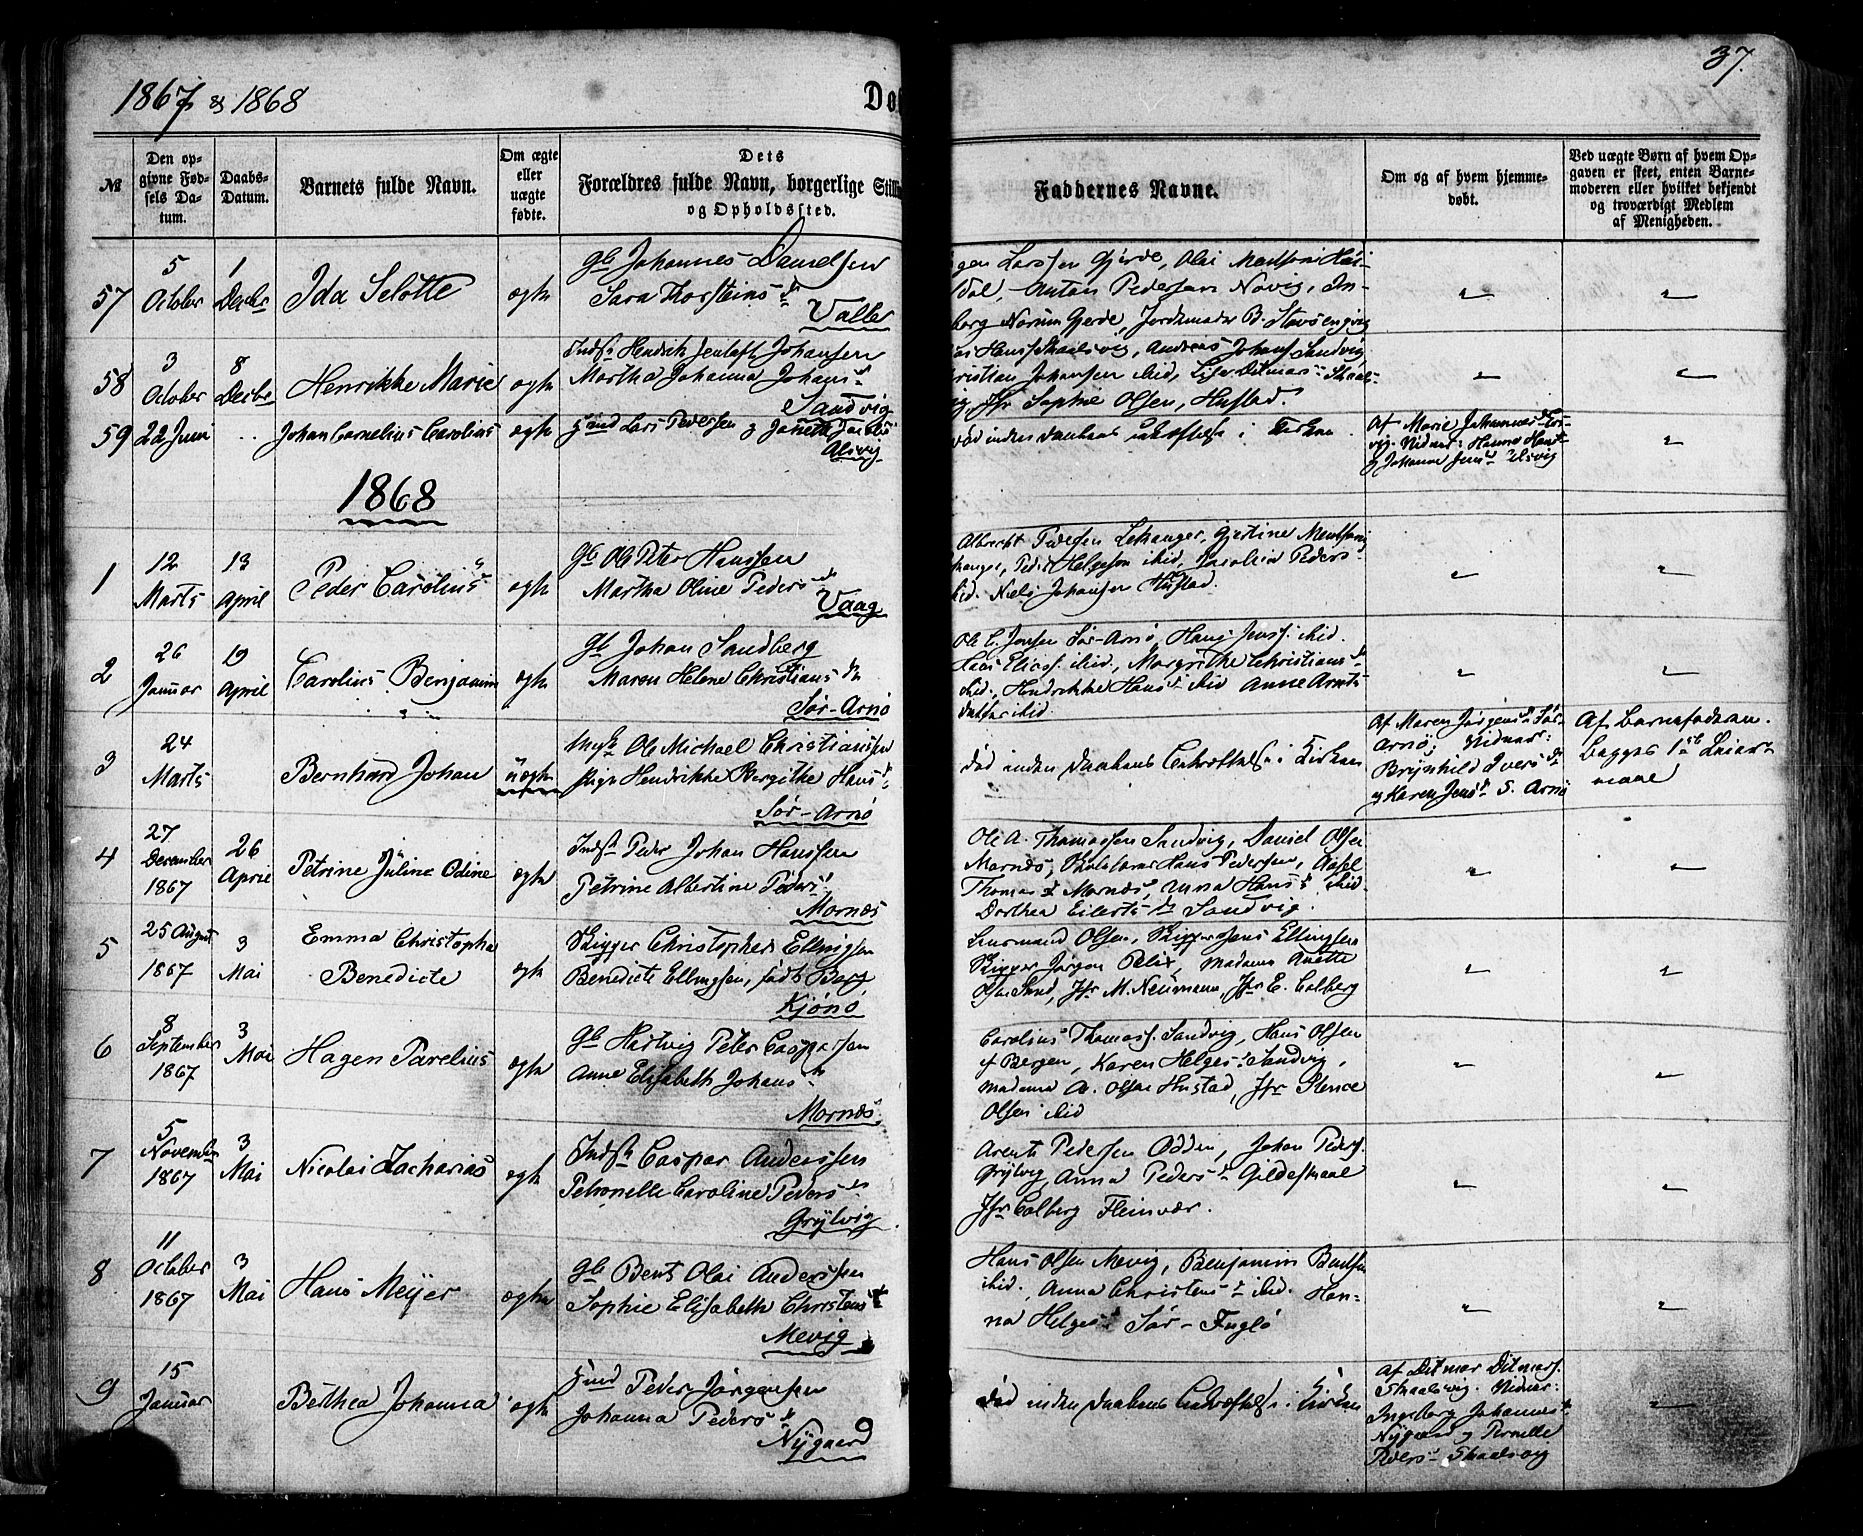 1867 & 1868
Do
37.
№
Den op-
givne Fød-
sels Da-
tum.
Daabs-
Datum.
Barnets fulde Navn.
Om ægte
eller
uægte
fødte.
Dets
Forældres fulde Navn, borgerlige Still
og Opholdssted.
Faddernes Navne.
Om og af hvem hjemme-
døbt.
Ved uægte Børn af hvem Op-
gaven er skeet, enten Barne-
moderen eller hvilket bekjendt
og troværdigt Medlem
af Menigheden.
57
5
October
1
Decbr
Ida Selotte
ægte
Gb Johannes Danielsen
Sara Thorsteins dr
Valle
Larssen Gjerde, Olai
dal, Anton Pedersen Novig, In-
borg Norum Gjerde, Jordemoder B. Stavsengvig
58
3
October
8
Decbr
Henrikke Marie
ægte
Inds. Hendrik Jentoft Johansen
Martha Johanna Johans dr
Sandvig
Hans Skaalsvig, Andreas Johans. Sandvig
ristian Johansen ibid, Lise Ditmars dr Skaals-
vig, Jfr Sophie Olsen, Hustad.
59
22 Juni
..
Johan Cornelius Carolius
ægte
Hmd Lars Pedersen og
Alsvig
død inden Daabens Bekræftelse i Kirken.
Af Marie Johannesd.
vig. Vidner: Hanna
og Johanna Jens dr Alsvig
1868
1
12
Marts
13
April
Peder Carolius
ægte
Gb Ole Peter Hanssen
Martha Oline Peders dr
Vaag
Albrecht Pedersen Lekanger, Gjertine
hanger, Peder Helgesen ibid, Karolia Peders-
ibid. Niels Johansen Hustad.
2
26
Januar
19
April
Carolius Benjamin
ægte
Gb Johan Sandberg
Maren Helene Christians dr
Sør-Arnø
Ole C. Jensen Sør-Arnø, Hans Jenss. ibid.
Eliass. ibid., Margrethe Christians dr
ibid., Hendrikke Hans dr ibid Anne Arnts
datter ibid.
3
24
Marts
Bernhard Johan
uægte
Ungk. Ole Michael Christiansen
Pige Hendrikke Bergithe Hans dr
Sør-Arnø
død inden Daabens Bekræftelse i Kirken
Af Maren Jørgens dr Sør-
Arnø, Vidner:
Brynhild Ivers dr
og Karen Jens dr S. Arnø
Af Barnefaderen.
begges 1ste Leier-
maal
4
27
December
1867
26
April
Petrine Juline Odine
ægte
Inds. Peder Johan Hanssen
Petrine Albertine Peders dr
Mornæs
Ole A. Thomassen Sandvig, Daniel Olsen
Mornæs, Skolelærer Hans Pedersen, Aasel
Thomas dr Mornæs, Anna Hans dr ibid.
Dorthea Eilerts dr Sandvig.
5
25 August
1867
3
Mai
Emma Christopha
Benedicte
ægte
Skipper Christopher Ellingsen
Benedicte Ellingsen, født Berg
Kjønø
Lensmand Olsen, Skipper Jens Ellingsen
Skipper Jørgen Pelix, Madame Anette
Olsen Sund, Jfr M. Neumann, Jfr E. Colberg
6
8
September
1867
3
Mai
Hagen Parelius
ægte
Gb Hartvig Peter Caspersen
Anne Elisabeth Johans dr
Mornæs.
Carolius Thomass. Sandvig, Hans Olsen
af Bergen, Karen Helges dr Sandvig,
Madame A. Olsen Hustad, Jfr Stence
Olsen ibid
7
5
November
1867
3
Mai
Nicolai Zacharias
ægte
Inds. Caspar Anderssen
Petronelle Caroline Peders dr
Grytvig
Arent Pedersen Odden, Johan Peders.
Grytvig Anna Peders dr Gildeskaal
Jfr Colberg Fleinvær.
8
11
October
1867
3
Mai
Hans Meyer
ægte
Gb Bent Olai Anderssen
Sophie Elisabeth Christens dr
Mevig
Hans Olsen Mevig, Benjamin Bentsen
ibid., Anna Christens dr ibid. Han-
na Helges dr Sør-Fuglø
9
15
Januar
Betthea Johanna
ægte
Hmd Peder Jørgensen
Johanna Peders dr
Nygaard
Død inden Daabens Bekræftelse i Kirken
Af Ditmar Ditmars.
Skaalsvig. Vidner:
Ingeborg Johannes dr
Nygaard og Pernille
Peders dr Skaalsvig